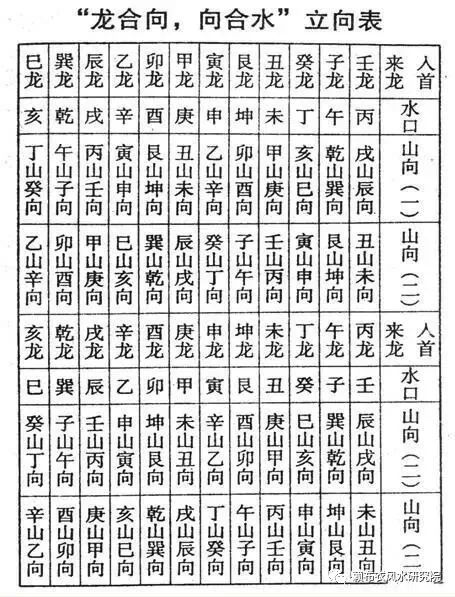 “龙合向，向合水”立向表
人首来龙 壬龙 子龙 癸龙 丑龙 艮龙 寅龙 甲龙 卯龙 乙龙 辰龙 巽龙 巳龙
水口 丙 午 丁 未 坤 申 庚 酉 辛 戌 乾 亥
山向（一） 戌山辰向 乾山巽向 亥山巳向 甲山庚向 卯山酉向 乙山辛向 丑山未向 艮山坤向 寅山申向 丙山壬向 午山子向 丁山癸向
山向（二） 丑山未向 艮山坤向 寅山申向 壬山丙向 子山午向 癸山丁向 辰山戌向 巽山乾向 巳山亥向 甲山庚向 卯山酉向 乙山辛向
人首来龙 丙龙 午龙 丁龙 未龙 坤龙 申龙 庚龙 酉龙 辛龙 戌龙 乾龙 亥龙
水口 壬 子 癸 丑 艮 寅 甲 卯 乙 辰 巽 巳
山向（二） 辰山戌向 巽山乾向 巳山亥向 庚山甲向 酉山卯向 辛山乙向 未山丑向 坤山艮向 申山寅向 壬山丙向 子山午向 癸山丁向
山向（二 未山丑向 坤山艮向 申山寅向 丙山壬向 午山子向 丁山癸向 戌山辰向 乾山巽向 亥山巳向 庚山甲向 酉山卯向 辛山乙向
赖布衣风水研究院